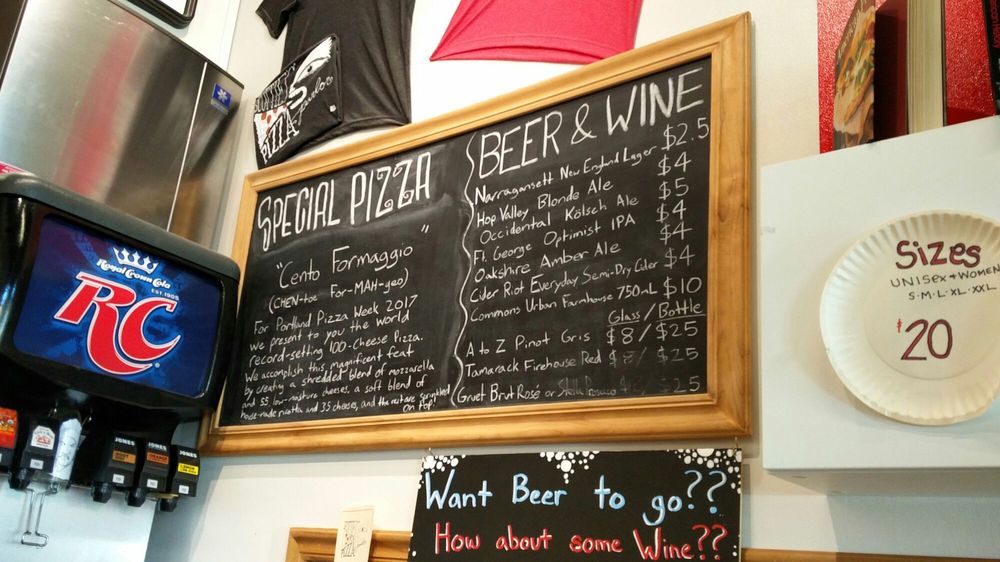 SPECIAL PIZZA
"Cento Formaggio"
(CHEN-toe For-MAH-geo)
For Portland Pizza Week 2017
we present to you the world
record-setting 100-Cheese Pizza.
We accomplish this magnificent feat
by creating a shredded blend of mozzarella
and 55 low-moisture cheeses, a soft blend of
house-made ricotta and 35 cheeses, and the rest are sprinkled
on top.
BEER & WINE
Narragansett New England Lager $2.5
Hop Valley Blonde Ale $4
Occidental Kölsch Ale $5
Ft. George Optimist IPA $4
Oakshire Amber Ale $4
Cider Riot Everyday Semi-Dry Cider $4
Commons Urban Farmhouse 750mL $10
Glass / Bottle
A to Z Pinot Gris $8 / $25
Tamarack Firehouse Red $8 / $25
Gruet Brut Rosé or Stella $25
Want Beer to go??
How about some Wine??
Sizes
UNISEX + WOMEN
S·M·L·XL·XXL
$20
Royal Crown Cola
EST. 1905
RC
JONES
JONES
JONES
PIZZA